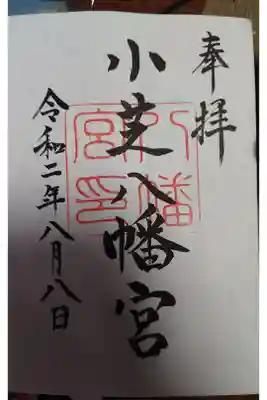 奉拝
小芝八幡宮
八幡宮印
令和二年八月八日